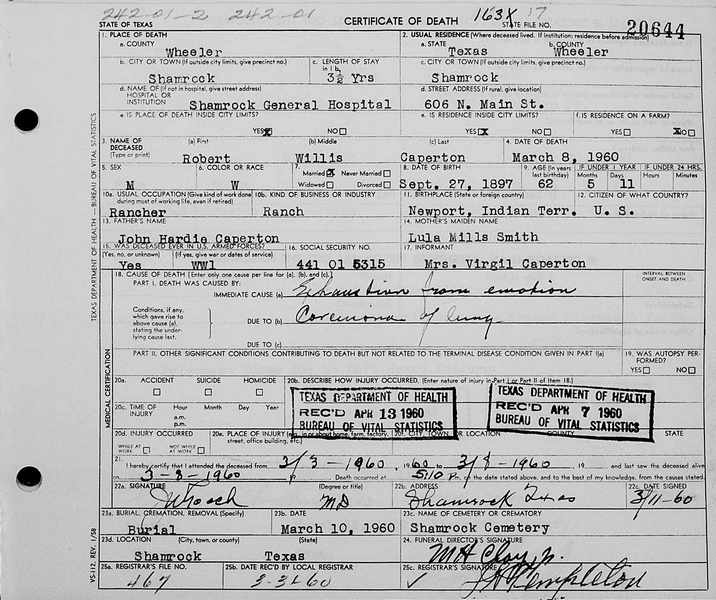 242-01-2 242-01
STATE OF TEXAS
CERTIFICATE OF DEATH
163X 17
STATE FILE NO.
20644
1. PLACE OF DEATH
2. USUAL RESIDENCE (Where deceased lived. If institution: residence before admission)
a. COUNTY
Wheeler
a. STATE
Texas
b. COUNTY
Wheeler
b. CITY OR TOWN (If outside city limits, give precinct no.)
Shamrock
c. LENGTH OF STAY
in 1 b.
3½ Yrs
c. CITY OR TOWN (If outside city limits, give precinct no.)
Shamrock
d. NAME OF (If not in hospital, give street address)
HOSPITAL OR
INSTITUTION
Shamrock General Hospital
d. STREET ADDRESS (If rural, give location)
606 N. Main St.
e. IS PLACE OF DEATH INSIDE CITY LIMITS?
YES X NO
e. IS RESIDENCE INSIDE CITY LIMITS?
YES X NO
f. IS RESIDENCE ON A FARM?
YES NO X
3. NAME OF
DECEASED
(Type or print)
(a) First
Robert
(b) Middle
Willis
(c) Last
Caperton
4. DATE OF DEATH
March 8, 1960
5. SEX
M
6. COLOR OR RACE
W
7.
Married X Never Married
Widowed Divorced
8. DATE OF BIRTH
Sept. 27, 1897
9. AGE (In years
last birthday)
62
IF UNDER 1 YEAR
Months Days
5 11
IF UNDER 24 HRS.
Hours Minutes
10a. USUAL OCCUPATION (Give kind of work done
during most of working life, even if retired)
Rancher
10b. KIND OF BUSINESS OR INDUSTRY
Ranch
11. BIRTHPLACE (State or foreign country)
Newport, Indian Terr.
12. CITIZEN OF WHAT COUNTRY?
U. S.
13. FATHER'S NAME
John Hardie Caperton
14. MOTHER'S MAIDEN NAME
Lula Mills Smith
15. WAS DECEASED EVER IN U.S. ARMED FORCES?
(Yes, no, or unknown) (If yes, give war or dates of service)
Yes WW1
16. SOCIAL SECURITY NO.
441 01 5315
17. INFORMANT
Mrs. Virgil Caperton
18. CAUSE OF DEATH [Enter only one cause per line for (a), (b), and (c).]
INTERVAL BETWEEN
ONSET AND DEATH
PART I. DEATH WAS CAUSED BY:
IMMEDIATE CAUSE (a)
Exhaustion from emotion
Conditions, if any,
which gave rise to
above cause (a),
stating the under-
lying cause last.
DUE TO (b)
Carcinoma of lung
DUE TO (c)
PART II. OTHER SIGNIFICANT CONDITIONS CONTRIBUTING TO DEATH BUT NOT RELATED TO THE TERMINAL DISEASE CONDITION GIVEN IN PART I(a)
19. WAS AUTOPSY PER-
FORMED?
YES NO
20a. ACCIDENT SUICIDE HOMICIDE
20b. DESCRIBE HOW INJURY OCCURRED. (Enter nature of injury in Part I or Part II of Item 18.)
20c. TIME OF
INJURY
Hour Month Day Year
a.m.
p.m.
TEXAS DEPARTMENT OF HEALTH
REC'D APR 13 1960
BUREAU OF VITAL STATISTICS
TEXAS DEPARTMENT OF HEALTH
REC'D APR 7 1960
BUREAU OF VITAL STATISTICS
20d. INJURY OCCURRED
WHILE AT WORK NOT WHILE AT WORK
20e. PLACE OF INJURY (e.g., in or about home, farm, factory,
street, office building, etc.)
20f. CITY, TOWN, OR LOCATION COUNTY STATE
21.
I hereby certify that I attended the deceased from 3/3-1960, 1960 to 3/8-1960, and last saw the deceased alive
on 3-8-1960. Death occurred at 5:10 P m on the date stated above, and to the best of my knowledge, from the causes stated.
22a. SIGNATURE
(Degree or title)
MD
22b. ADDRESS
Shamrock Texas
22c. DATE SIGNED
3/11-60
23a. BURIAL, CREMATION, REMOVAL (Specify)
Burial
23b. DATE
March 10, 1960
23c. NAME OF CEMETERY OR CREMATORY
Shamrock Cemetery
23d. LOCATION (City, town, or county) (State)
Shamrock Texas
24. FUNERAL DIRECTOR'S SIGNATURE
M H Clay, Jr.
25a. REGISTRAR'S FILE NO.
467
25b. DATE REC'D BY LOCAL REGISTRAR
3-31-60
25c. REGISTRAR'S SIGNATURE
Templeton
TEXAS DEPARTMENT OF HEALTH — BUREAU OF VITAL STATISTICS
MEDICAL CERTIFICATION
VS-112, REV. 1/58